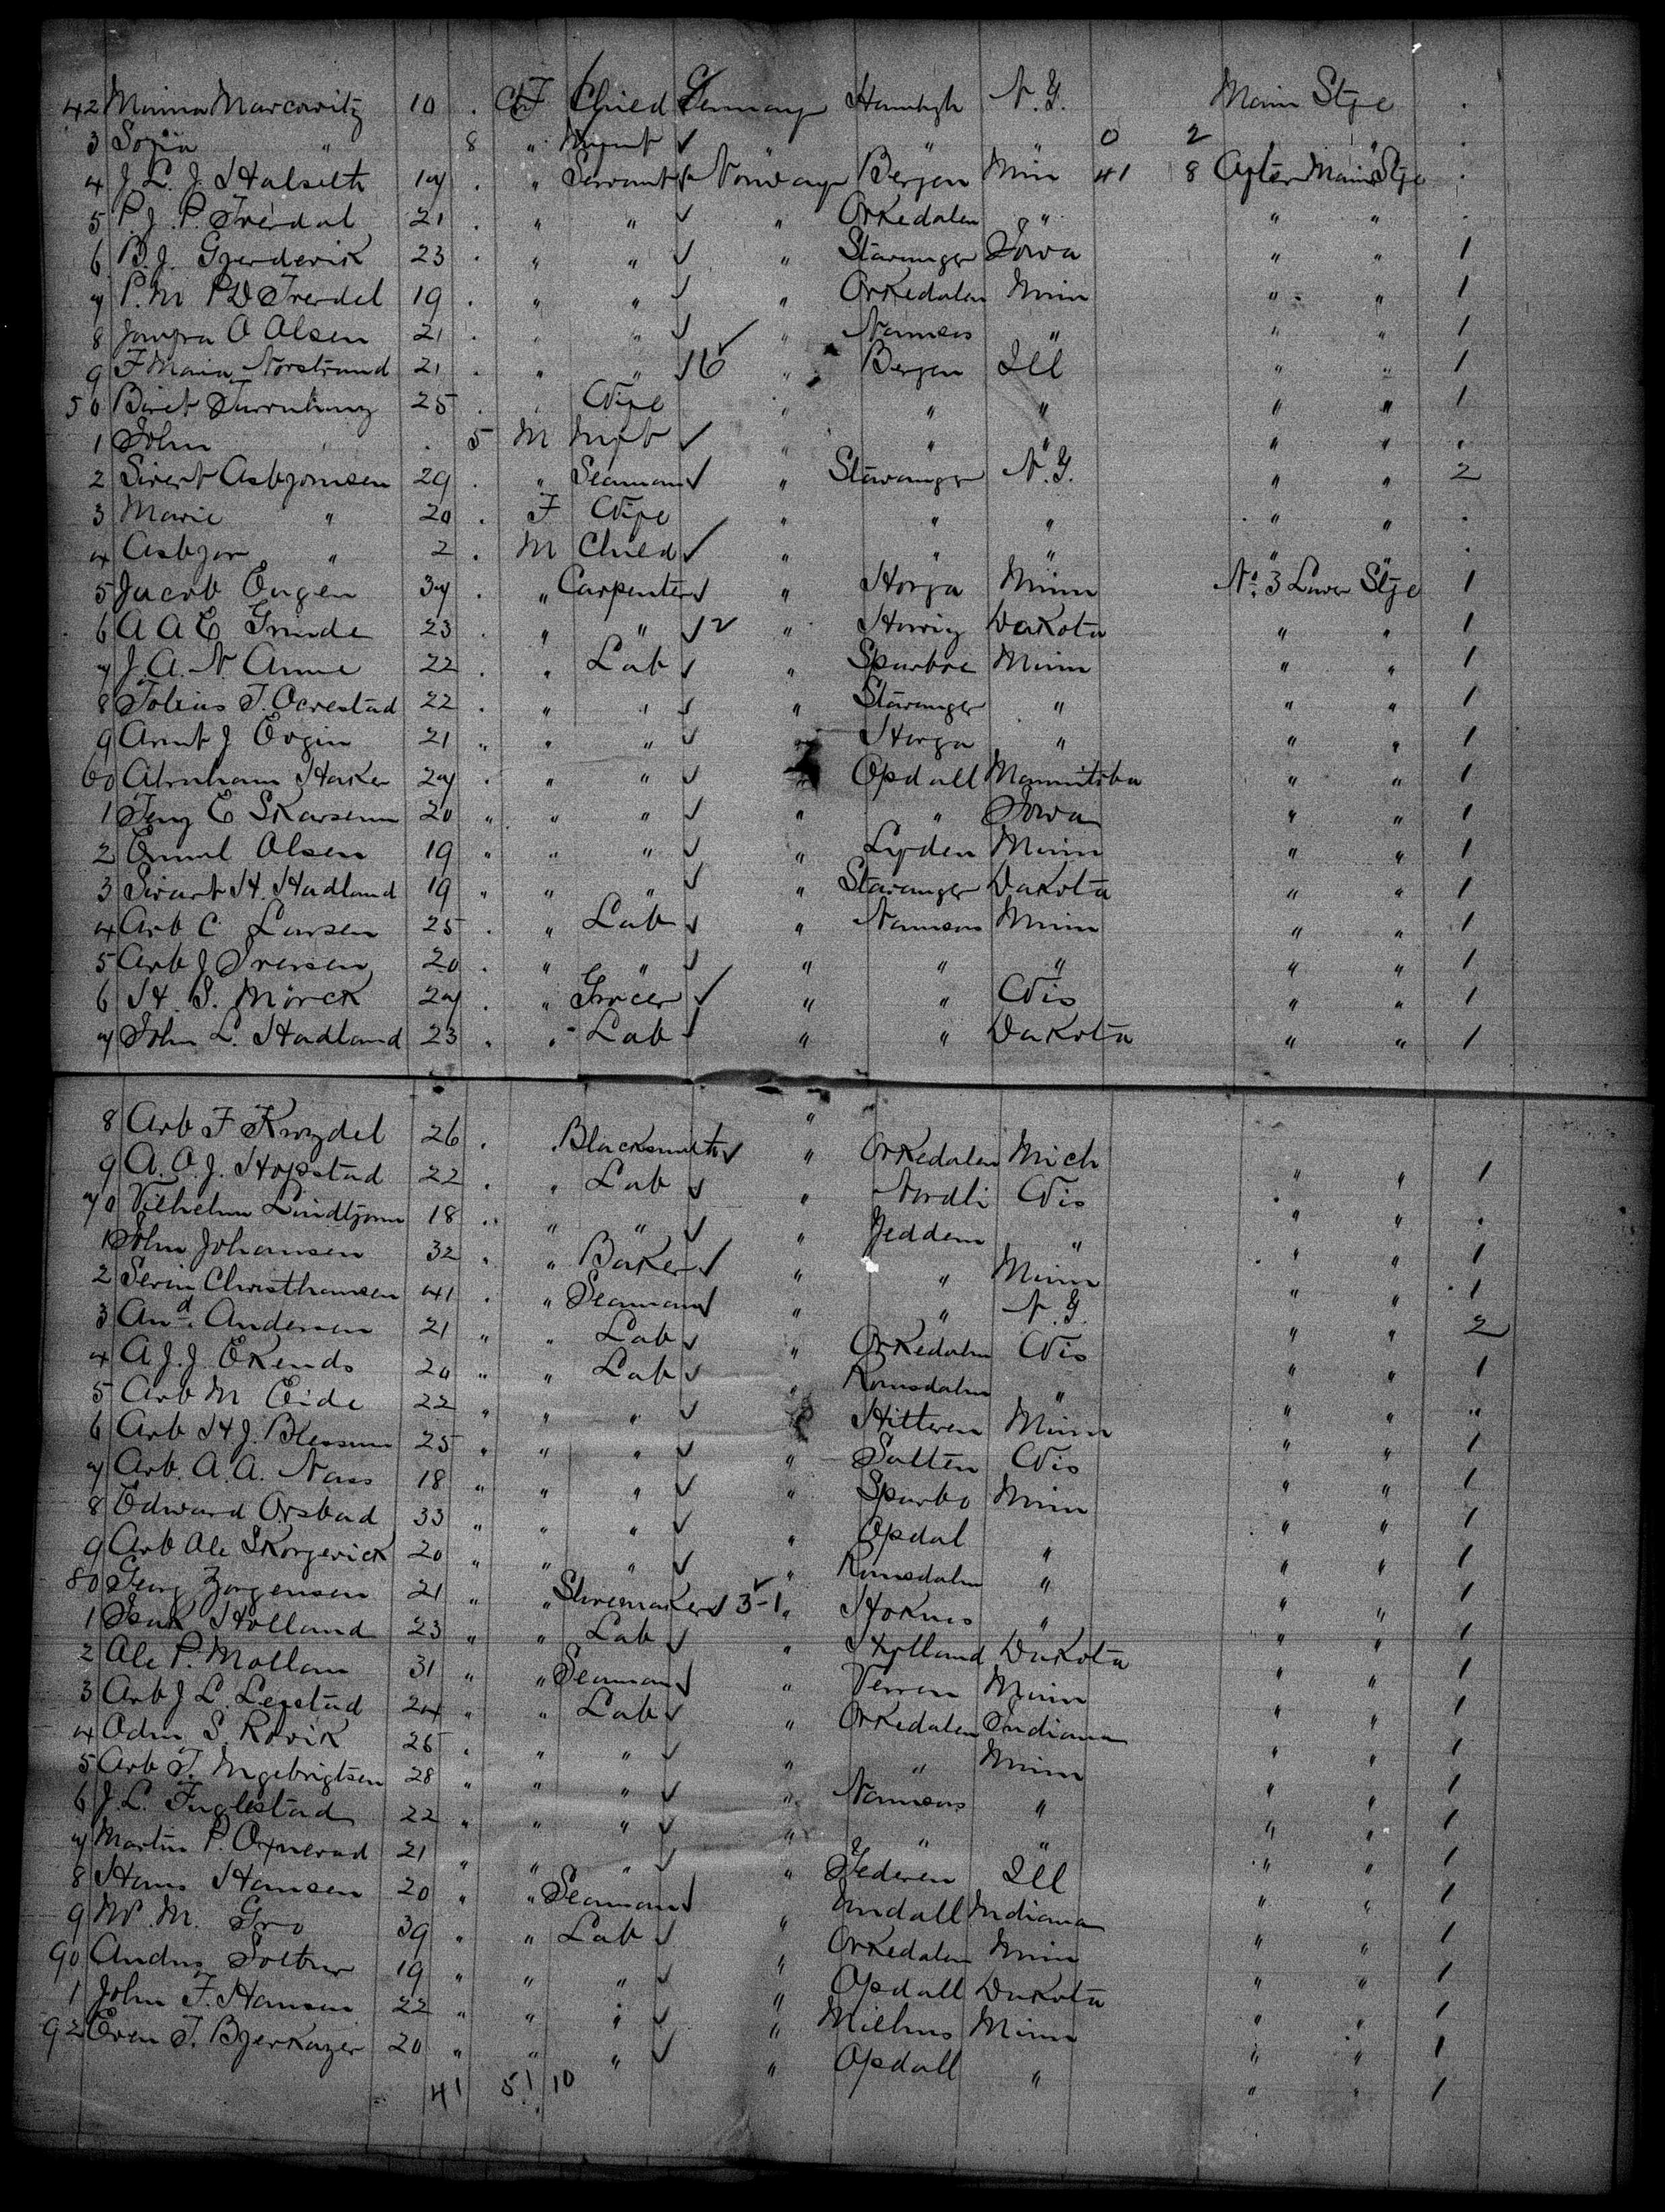 42 Minna Marcowitz 10 . F Child Germany Hamburgh N.Y. Main Stge .
3 Sofia " 8 " Infnt ✓ " " " 0 2 .
4 J. L. J. Halseth 19 . " Servant ✓ Norway Bergen Minn 41 8 After Main Stge .
5 P. J. P. Tverdal 21 . " " ✓ " Orkedalen " " " .
6 B. J. Gjerdevik 23 . " " ✓ " Stavanger Iowa " " 1
7 P. M P D Trerdel 19 . " " ✓ " Orkedalen Minn " " 1
8 Jomfra O Olsen 21 . " " ✓ " Namsos " " " 1
9 F Maria Norstrand 21 . " " ✓ 16 ✓ " Bergen Ill " " 1
50 Biret 25 . " Wife " " " " " 1
1 John " . 5 M Infnt ✓ " " " " " .
2 Sivert Asbjornsen 29 . " Seaman ✓ " Stavanger N.Y. " " 2
3 Marie " 20 . F Wife " " " " " .
4 Asbjor " 2 . M Child ✓ " " " " " .
5 Jacob Engen 37 . " Carpenter ✓ " Horja Minn No. 3 Lower Stge 1
6 A A E Grinde 23 . " " ✓ 2 " Howig Dakota " " 1
7 J. A. N. Anne 22 . " Lab ✓ " Sparboe Minn " " 1
8 Tobias T. Ocrestad 22 . " " ✓ " Stavanger " " " 1
9 Arnt J Evgin 21 " " " ✓ " Horga " " " 1
60 Abraham Haker 27 . " " ✓ " Opdall Mannitoba " " 1
1 Jeng E Skarsenn 20 " " " ✓ " " Iowa " " 1
2 Emml Olsen 19 " " " ✓ " Lyden Minn " " 1
3 Sivart H. Hadland 19 " " " ✓ " Stavanger Dakota " " 1
4 Arb C Larsen 25 . " Lab ✓ " Namsos Minn " " 1
5 Arb J Iversen 20 . " " ✓ " " " " " 1
6 H. S. Mörck 27 . " Grocer ✓ " " Wis " " 1
7 John L. Hadland 23 . " Lab ✓ " " Dakota " " 1
8 Arb F Kwzdel 26 . Blacksmith ✓ " Orkedalen Mich " " 1
9 A. O. J. Hopstad 22 . " Lab ✓ " Nordli Wis " " .
70 Vilhelm Lindtjorn 18 " " " ✓ " Jeddem " " " 1
1 John Johansen 32 . " Baker ✓ " " Minn " " 1
2 Serin Christhansen 41 . " Seaman ✓ " " N.Y. " " 2
3 And. Andersen 21 " " Lab ✓ " Orkedalen Wis " " 1
4 A. J. J. Ekends 20 " " Lab ✓ " Romsdalen " " " "
5 Arb M Eide 22 " " " ✓ " Hitteren Minn " " 1
6 Arb H J. Blessum 25 " " " ✓ " Salten Wis " " 1
7 Arb. A. A. Nass 18 " " " ✓ " Sparbo Minn " " 1
8 Edward Orsbad 33 " " " ✓ " Opdal " " " 1
9 Arb Ole Skorgevick 20 " " " ✓ " Romsdalen " " " 1
80 Georg Jorgensen 21 " " Shoemaker ✓ 3-1 " Hoknes " " " 1
1 Isak Holland 23 " " Lab ✓ " Hylland Dakota " " 1
2 Ole P. Mollan 31 " " Seaman ✓ " Verran Minn " " 1
3 Arb J L. Leystad 24 " " Lab ✓ " Orkedalen Indiana " " 1
4 Odin S. Rövik 26 . " " ✓ " " Minn " " 1
5 Arb T. Ingebrigtsen 28 " " " ✓ " Namsos " " " 1
6 J. L. Fuglestad 22 " " " ✓ " " " " " 1
7 Martin P. 21 " " " ✓ " Jederen Ill " " 1
8 Hans Hansen 20 " " Seaman ✓ " Indiana " " 1
9 M. Gro 39 " " Lab ✓ " Orkedalen Minn " " 1
90 Andrus 19 " " " ✓ " Opdall Dakota " " 1
1 John F. Hansen 22 " " " ✓ " Milhus Minn " " 1
92 Even T. Bjerkager 20 " " " ✓ " Opdall " " " 1
41 51 10